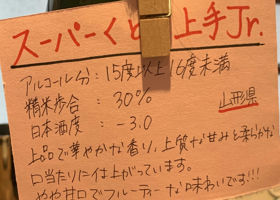 スーパーくど上手Jr.
アルコール分：15度以上16度未満
精米歩合：30%
山形県
日本酒度：-3.0
上品で華やかな香り、上質な甘みと柔らかな
口当たりに仕上がっています。
やや甘口でフルーティーな味わいです!!!